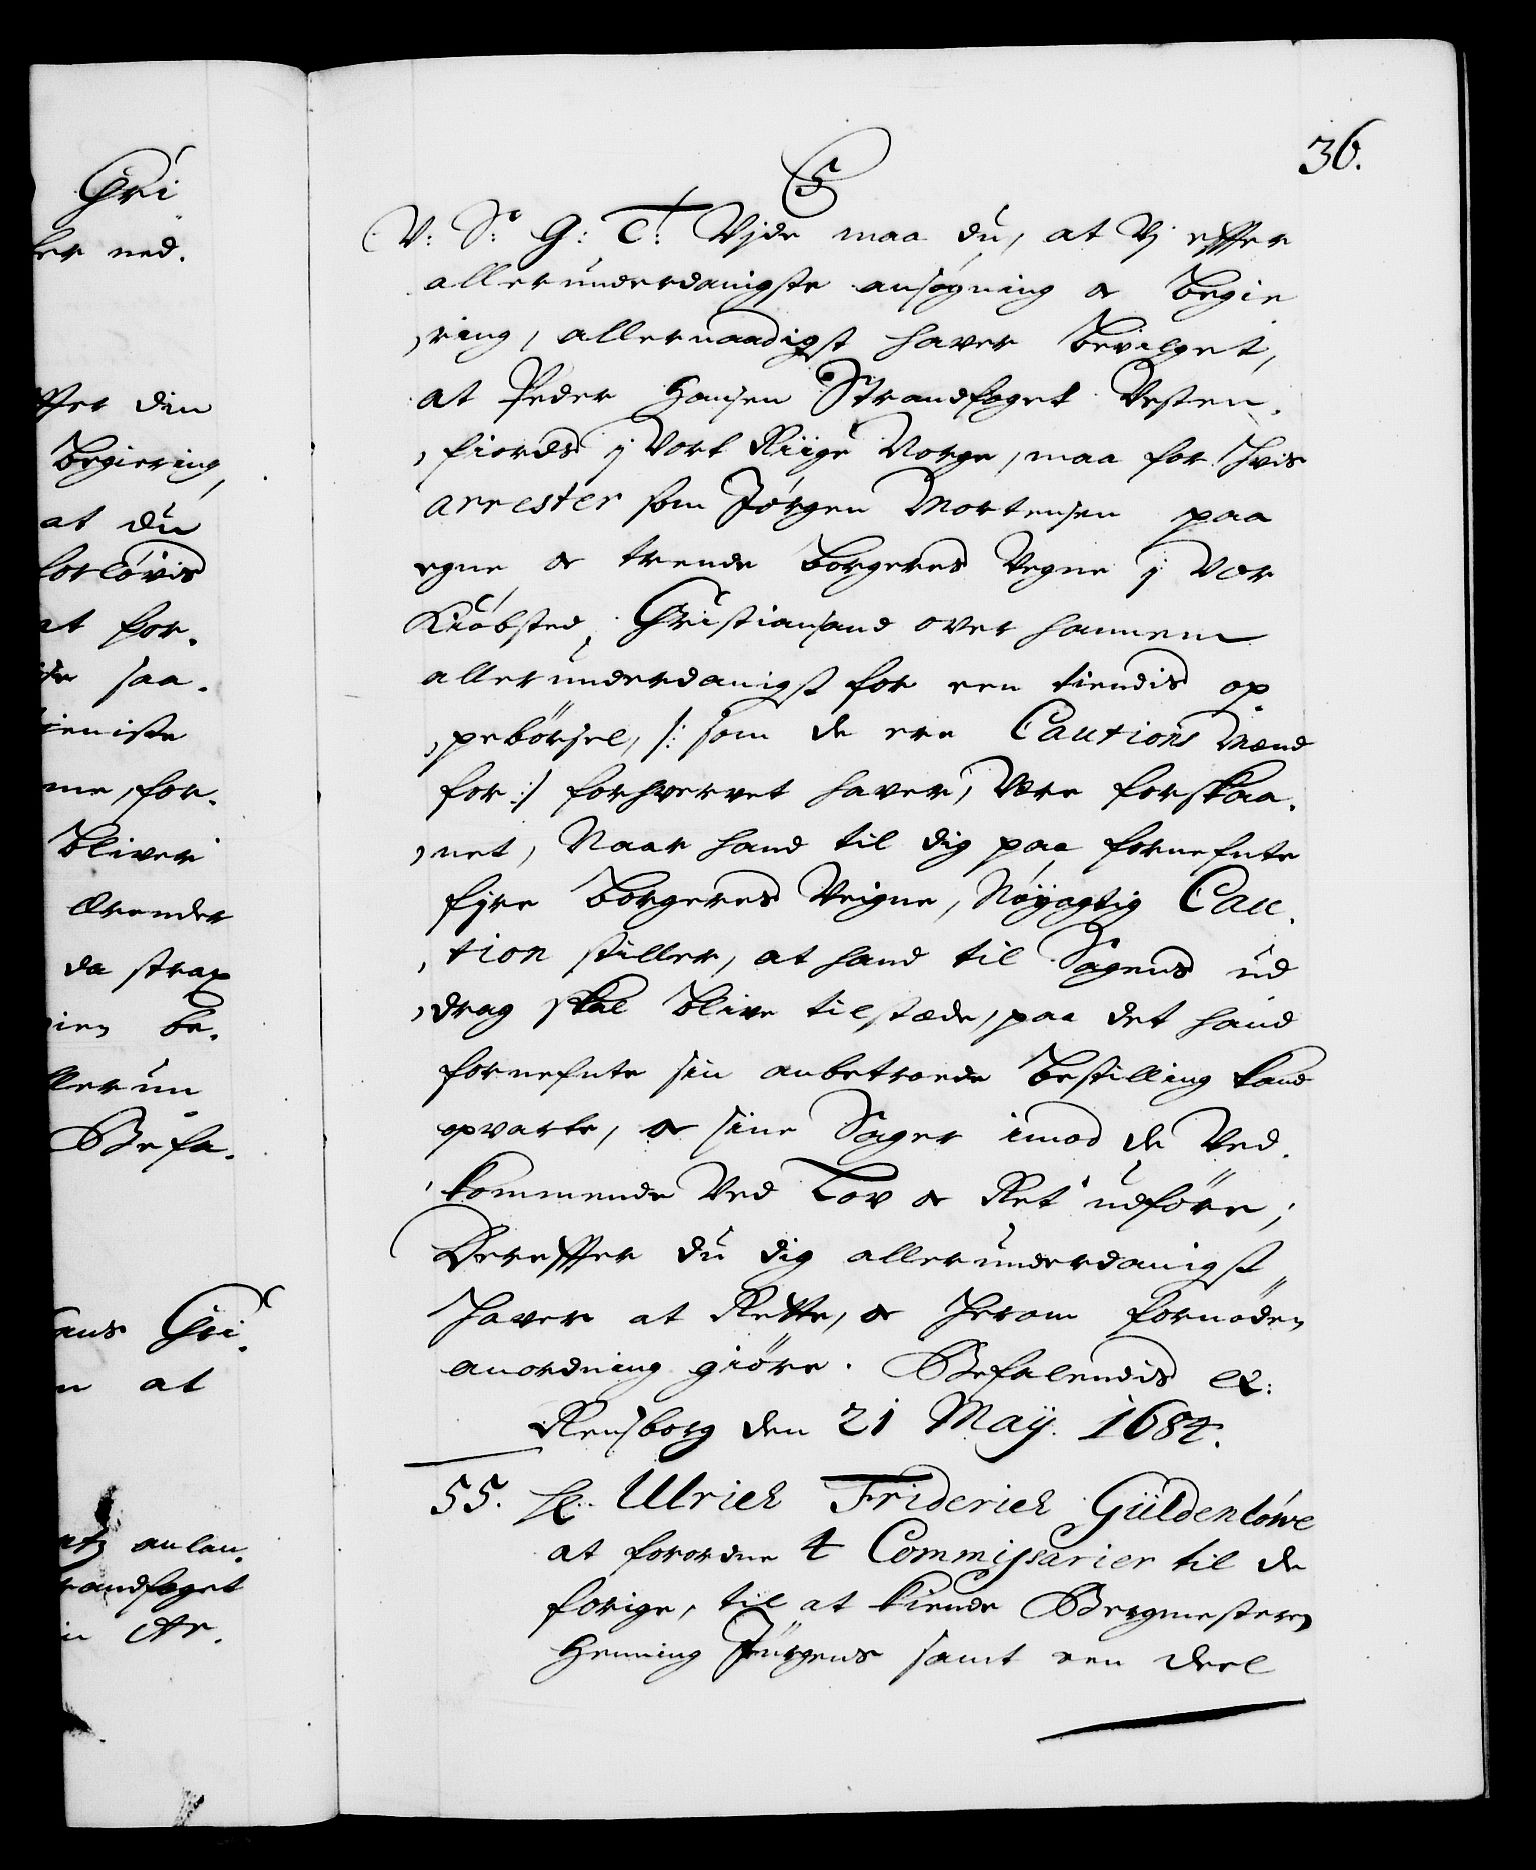 Chri
ber ned.
ffter din
Begiering,
at du
forløvis
at for-
saa
ieniste
me, for-
bliver
Ærender
da strax
ien be-
ller un
Befa-
ens Chri-
n at
anlan-
randfoget
in Ar-
36.
C5
V: S: G: T: Vjde maa du, at Vj effter
allerunderdanigste ansøgning oc Begie
ring, allernaadigst haver Bevilget,
at Peder Hansen Strandfoget Vesten-
fiords j Vort Riige Norge, maa for hvis
arrester som Jørgen Mortensen paa
egne oc trende Borgeres Vegne j Vor
Kiøbsted Christiansand over hannem
allerunderdanigst for een tiendis op-
pebørsel, /: som de ere Cautions Mænd
for :/ forhvervet haver, Være forskaa-
net, Naar hand til dig paa fornefnte
fjre Borgeres Veigne, Nøyagtig Cau-
tion stiller, at hand til Sagens ud
drag skal blive tilstæde, paa det hand
fornefnte sin anbetroede Bestilling kand
opvarte, oc sine Sager imod de Ved-
kommende Ved Lov oc Ret udføre;
Dereffter du dig allerunderdanigst
haver at Rette, oc herom fornøden
anordning giøre. Befalendis &:
Rensborg den 21 Maÿ. 1684.
55. H: Ulrich Friderich Güldenløwe
at forordne 4 Commissarier til de
forige, til at kiende Bergmesteren
Henning Jürgens samt een Deel